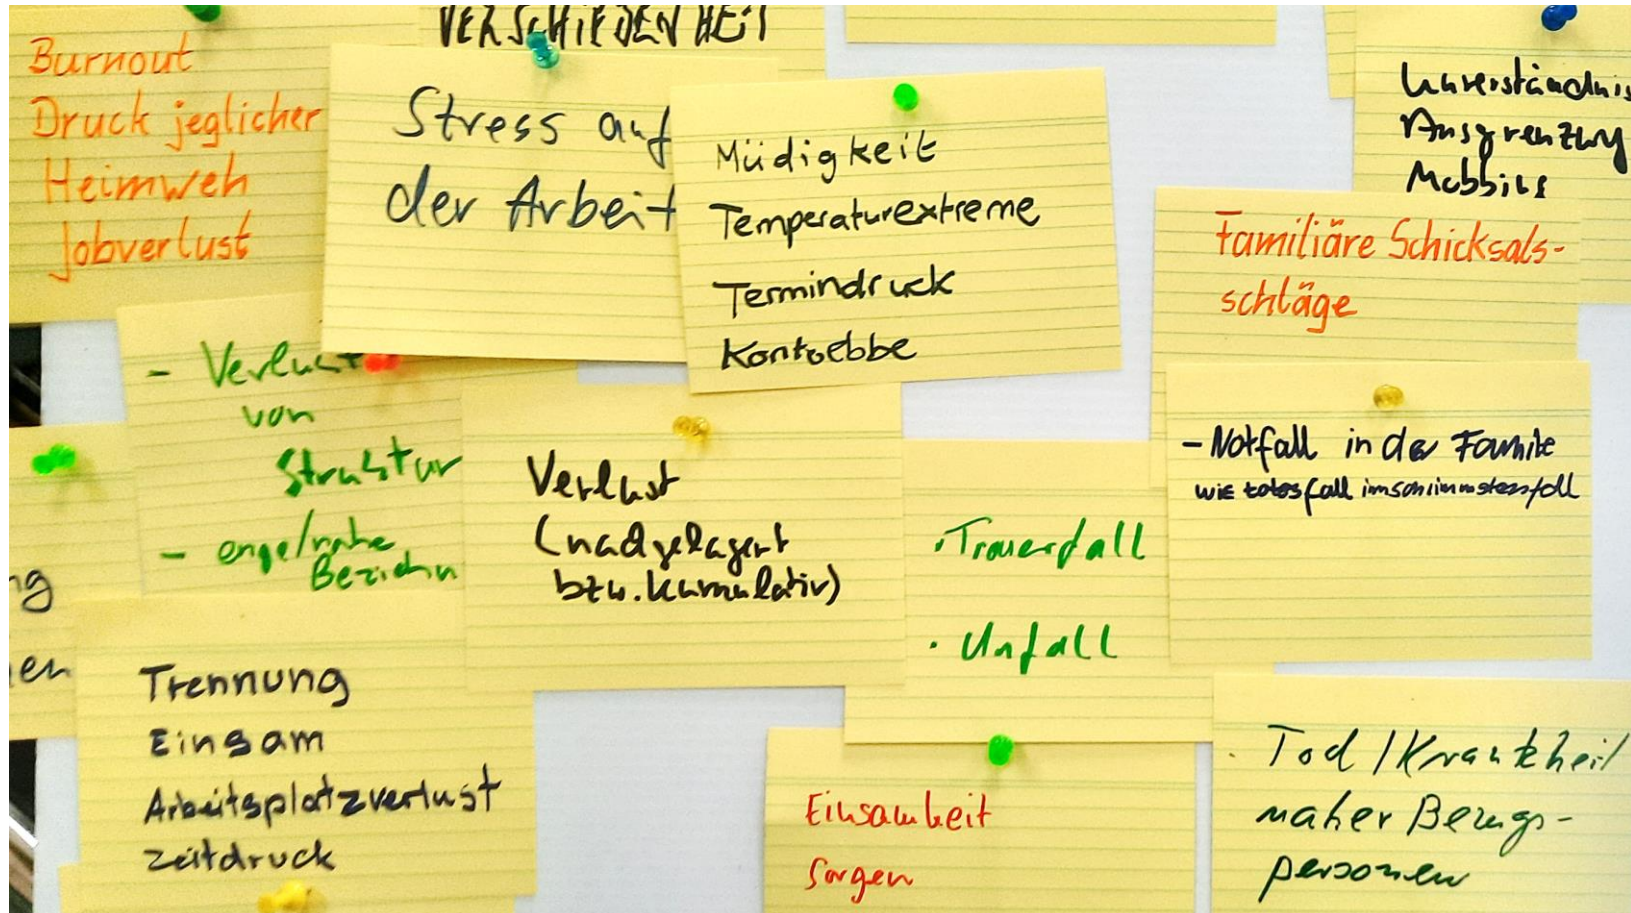 VERSCHIEDENHEIT
Burnout
Druck jeglicher
Heimweh
Jobverlust
Stress auf
der Arbeit
Müdigkeit
Temperaturextreme
Termindruck
Kontoebbe
Unverständnis
Ausgrenzung
Mobbing
Familiäre Schicksals-
schläge
- Verlust
von
Struktur
- enge/nahe
Verlust
(nachgelagert
bzw. kumulativ)
· Trauerfall
· Unfall
- Notfall in der Familie
wie totesfall im schlimmstenfall
ng
en
Trennung
Einsam
Arbeitsplatzverlust
Zeitdruck
Einsamkeit
Sorgen
· Tod / Krankheit
naher Bezugs-
personen